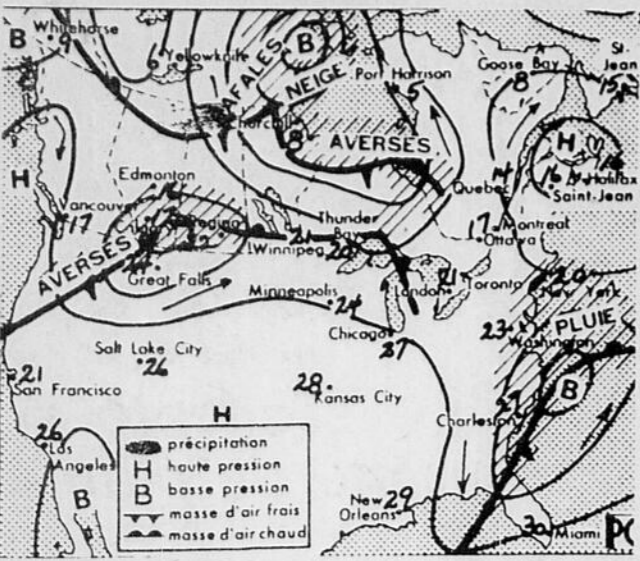 B
Whitehorse
9
6
Yellowknife
RAFALES
B
NEIGE
Port Harrison
5
Goose Bay
8
St-
Jean
15
Churchill
8
AVERSES
H
H
Edmonton
Vancouver
17
Quebec
14
16
Halifax
Saint-Jean
Regina
Thunder
Bay
20
Winnipeg
21
17
Montreal
Ottawa
AVERSES
Great Falls
Minneapolis
24
London
21
Toronto
20
New York
Chicago
27
23
Washington
PLUIE
Salt Lake City
26
21
San Francisco
28
Kansas City
B
H
Charleston
27
26
Los
Angeles
B
précipitation
H haute pression
B basse pression
masse d'air frais
masse d'air chaud
New
Orleans
29
30
Miami
PC